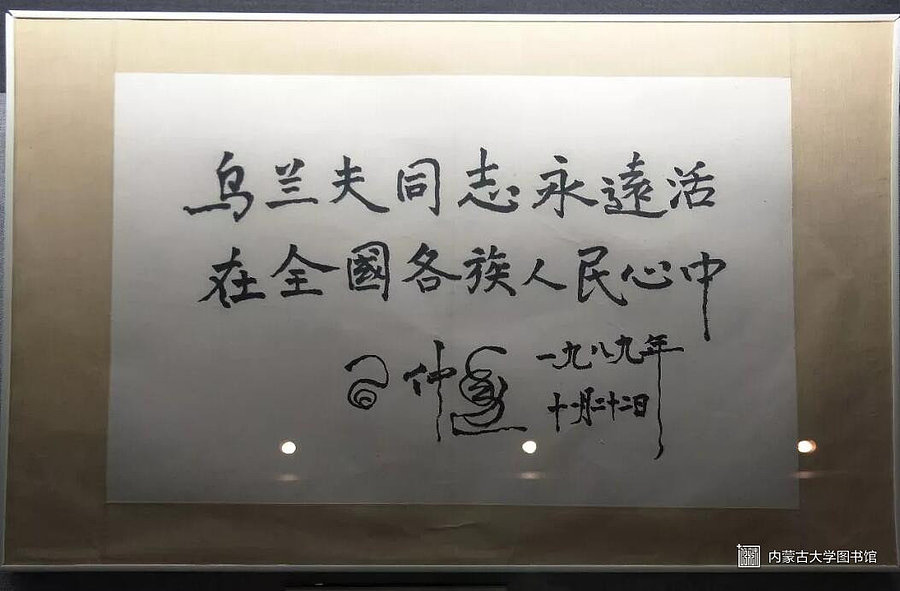 乌兰夫同志永遠活
在全國各族人民心中
仲
一九八九年
十一月二十二日
内蒙古大学图书馆